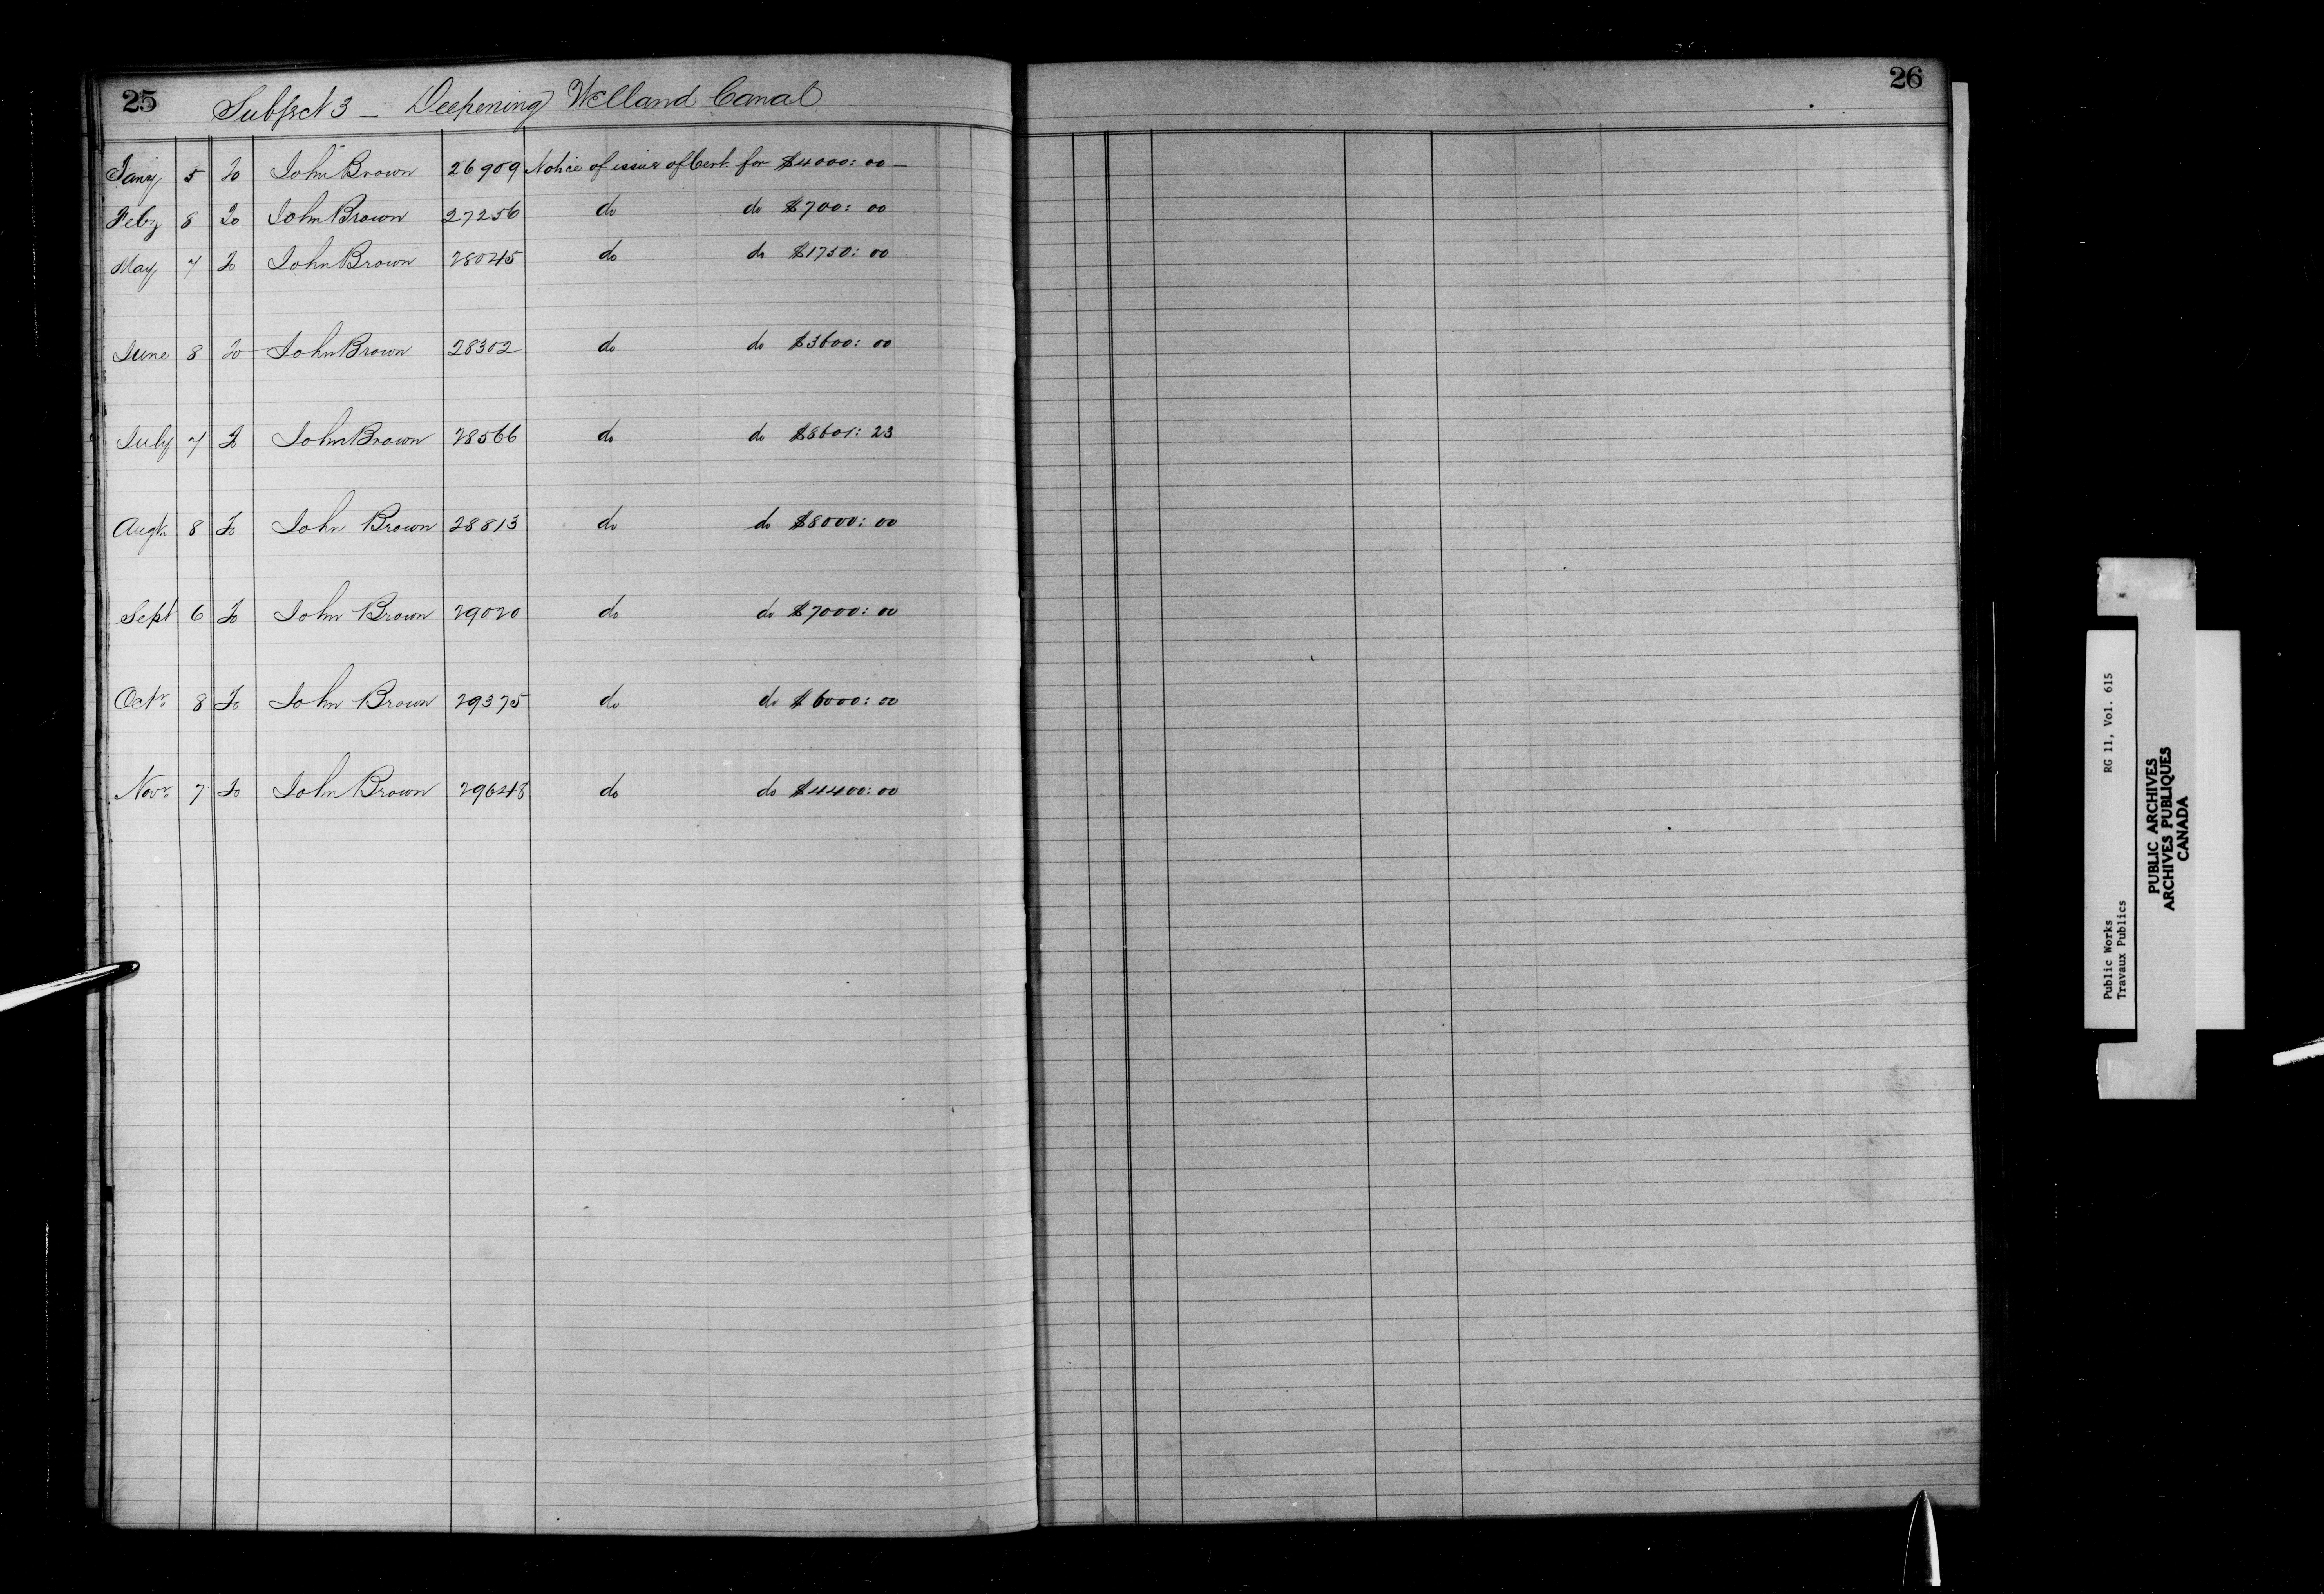 25 Subject 3 — Deepening Welland Canal
Jany 5 To John Brown 26909 Notice of issue of Cert. for $4000:00 —
Feby 8 To John Brown 27256 do do $700:00
May 7 To John Brown 28045 do do $1750:00
June 8 To John Brown 28302 do do $3600:00
July 7 To John Brown 28566 do do $8601:23
Augt. 8 To John Brown 28813 do do $8000:00
Sept 6 To John Brown 29020 do do $7000:00
Octr. 8 To John Brown 29375 do do $6000:00
Novr. 7 To John Brown 29648 do do $4400:00
26
Public Works RG 11, Vol. 615
Travaux Publics
PUBLIC ARCHIVES
ARCHIVES PUBLIQUES
CANADA